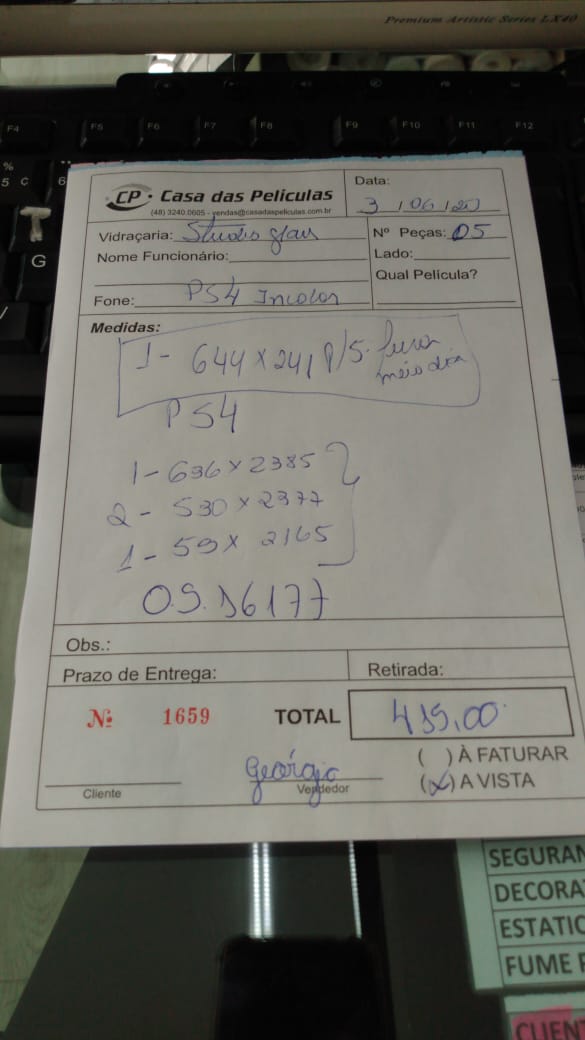 Premium Artistic Series LX40
F4 F5 F6 F7 F8 F9 F10 F11 F12
% 5 Ç 6
T
G
CP · Casa das Películas
(48) 3240.0605 - vendas@casadaspeliculas.com.br
Data: 3 / 06 /
Vidraçaria: Studio
Nº Peças: 05
Nome Funcionário:
Lado:
Qual Película?
Fone: PS4 Incolor
Medidas:
1 - 644 x 241
meio dia
PS4
1 - 636 x 2385
2 - 530 x 2377
1 - 59 x 2165
O.S. 16177
Obs.:
Prazo de Entrega:
Retirada:
Nº 1659
TOTAL
( ) À FATURAR
(x) A VISTA
Geórgio
Cliente
Vendedor
SEGURAN
DECORA
ESTATIC
FUME
CLIENT